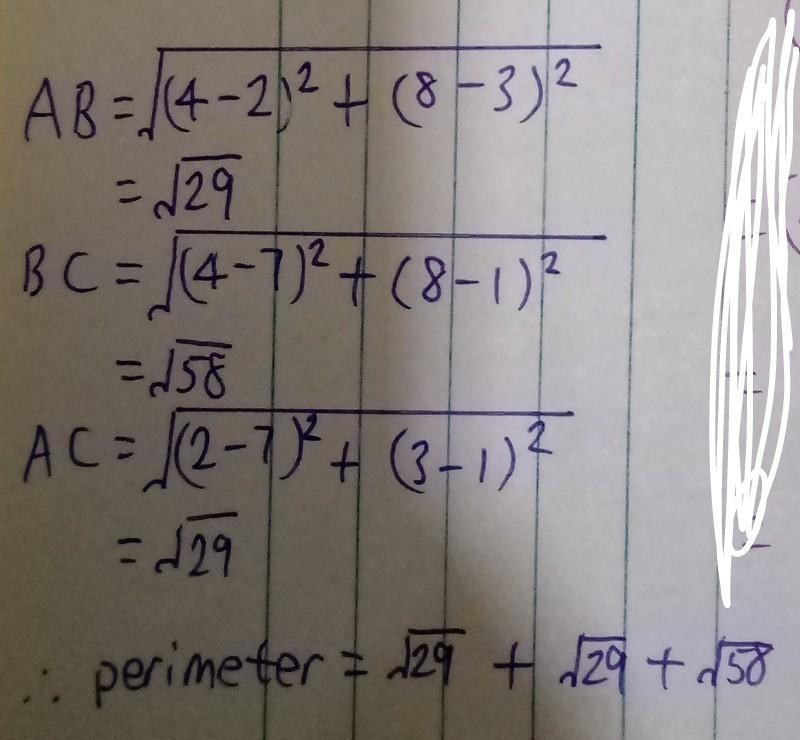 AB = √(4-2)² + (8-3)²
= √29
BC = √(4-7)² + (8-1)²
= √58
AC = √(2-7)² + (3-1)²
= √29
∴ perimeter = √29 + √29 + √58